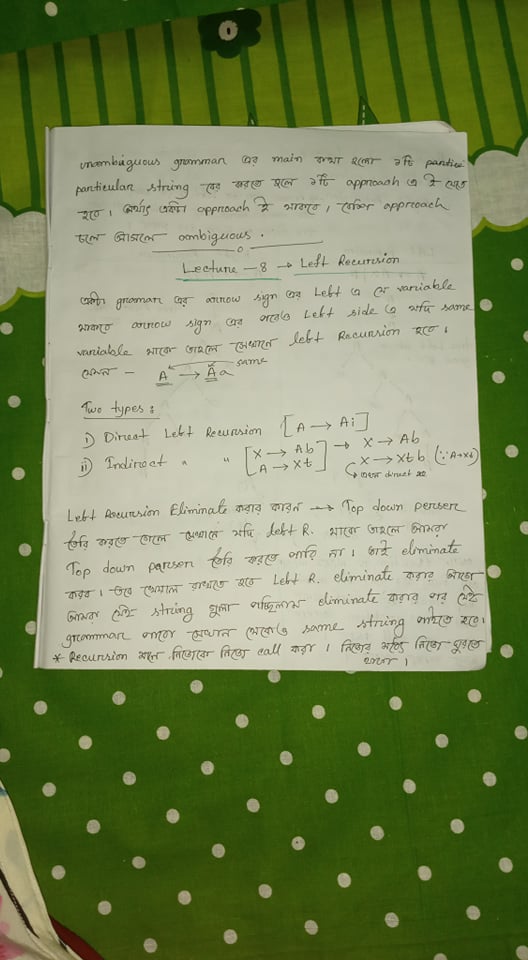 unambiguous grammar এর main কথা হলো ১টি partic
particular string বের করতে হলে ১টি approach এ ই যেতে
হবে। অর্থাৎ একটা approach ই থাকবে, বেশি approach
চলে আসলে ambiguous.
Lecture - 8 → Left Recursion
একটা grammar এর arrow sign এর Left এ যে variable
থাকবে arrow sign এর পরেও Left side এ যদি same
variable থাকে তাহলে সেখানে left Recursion হবে।
যেমন - A → Aa same
Two types:
i) Direct Left Recursion [A → Ai]
ii) Indirect " " [X → Ab A → Xt] → X → Ab X → Xtb (∵ A→Xt)
↳ এখন direct
Left Recursion Eliminate করার কারন → Top down perser
তৈরি করতে গেলে সেখানে যদি left R. থাকে তাহলে আমরা
Top down parser তৈরি করতে পারি না। তাই eliminate
করব। তবে খেয়াল রাখতে হবে Left R. eliminate করার আগে
আমরা যেই string গুলা পাচ্ছিলাম eliminate করার পর যেই
grammar পাবো সেখান থেকেও same string পাইতে হবে।
* Recursion মানে নিজেকে নিজে call করা। নিজের মধ্যে নিজে ঘুরতে
থাকে।